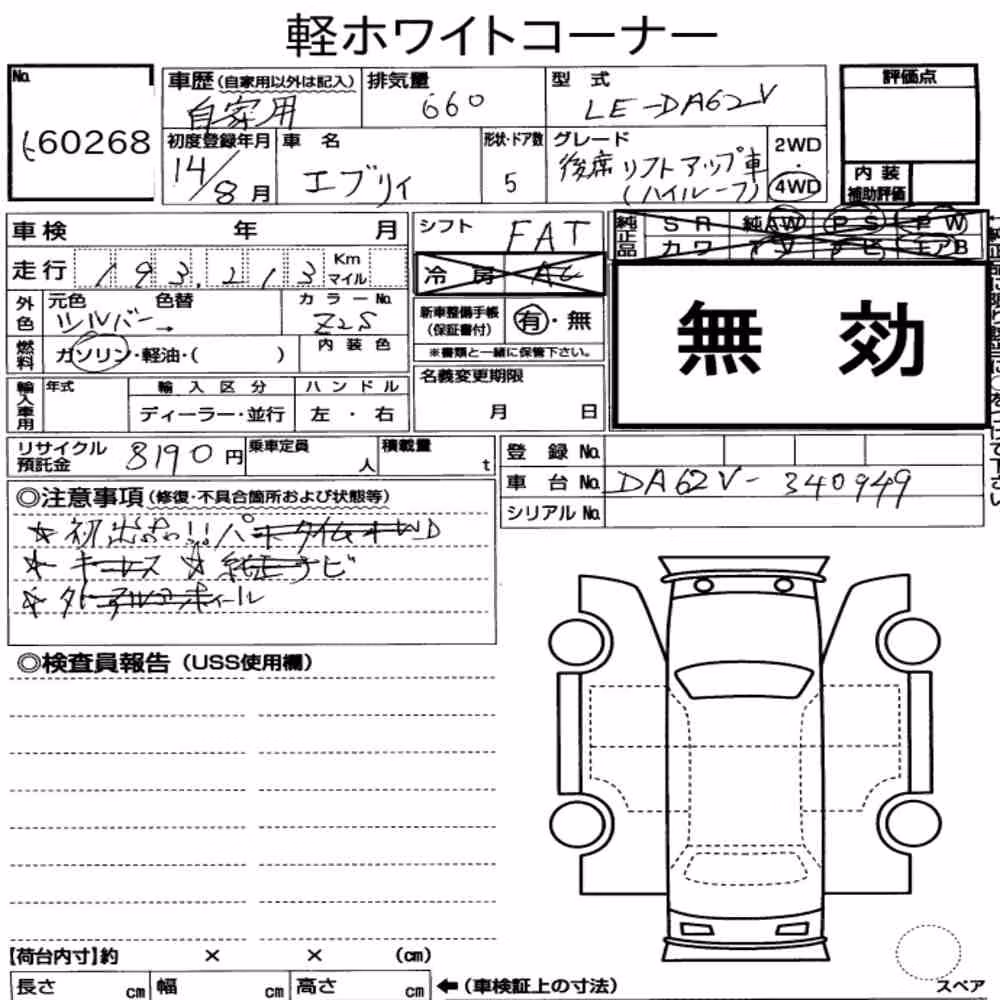 軽ホワイトコーナー
No.
60268
車歴(自家用以外は記入)
自家用
排気量
660
型 式
LE-DA62V
評価点
初度登録年月
14/8月
車 名
エブリィ
形状・ドア数
5
グレード
後席リフトアップ車
(ハイルーフ)
2WD
・
4WD
内 装
補助評価
車 検 年 月
シフト
FAT
純正品
S R 純AW P S P W
カ ワ T V ナ ビ エアB
走 行 193,213 Km マイル
冷 房 AC
外色
元色 色替
シルバー→
カラーNo.
Z2S
新車整備手帳
(保証書付)
有・無
※書類と一緒に保管下さい。
無 効
燃料
ガソリン・軽油・( )
内 装 色
輸入車用
年式
輸 入 区 分
ディーラー・並行
ハ ン ド ル
左 ・ 右
名義変更期限
月 日
リサイクル
預託金
8190円
乗車定員
人
積載量
t
登 録 No.
車 台 No. DA62V-340949
シリアル No.
◎注意事項(修復・不具合箇所および状態等)
★初出品!! パートタイム4WD
★キーレス ★純正ナビ
★外アルミホイール
◎検査員報告(USS使用欄)
【荷台内寸】約 × × (cm)
長さ cm 幅 cm 高さ cm
←(車検証上の寸法)
スペア